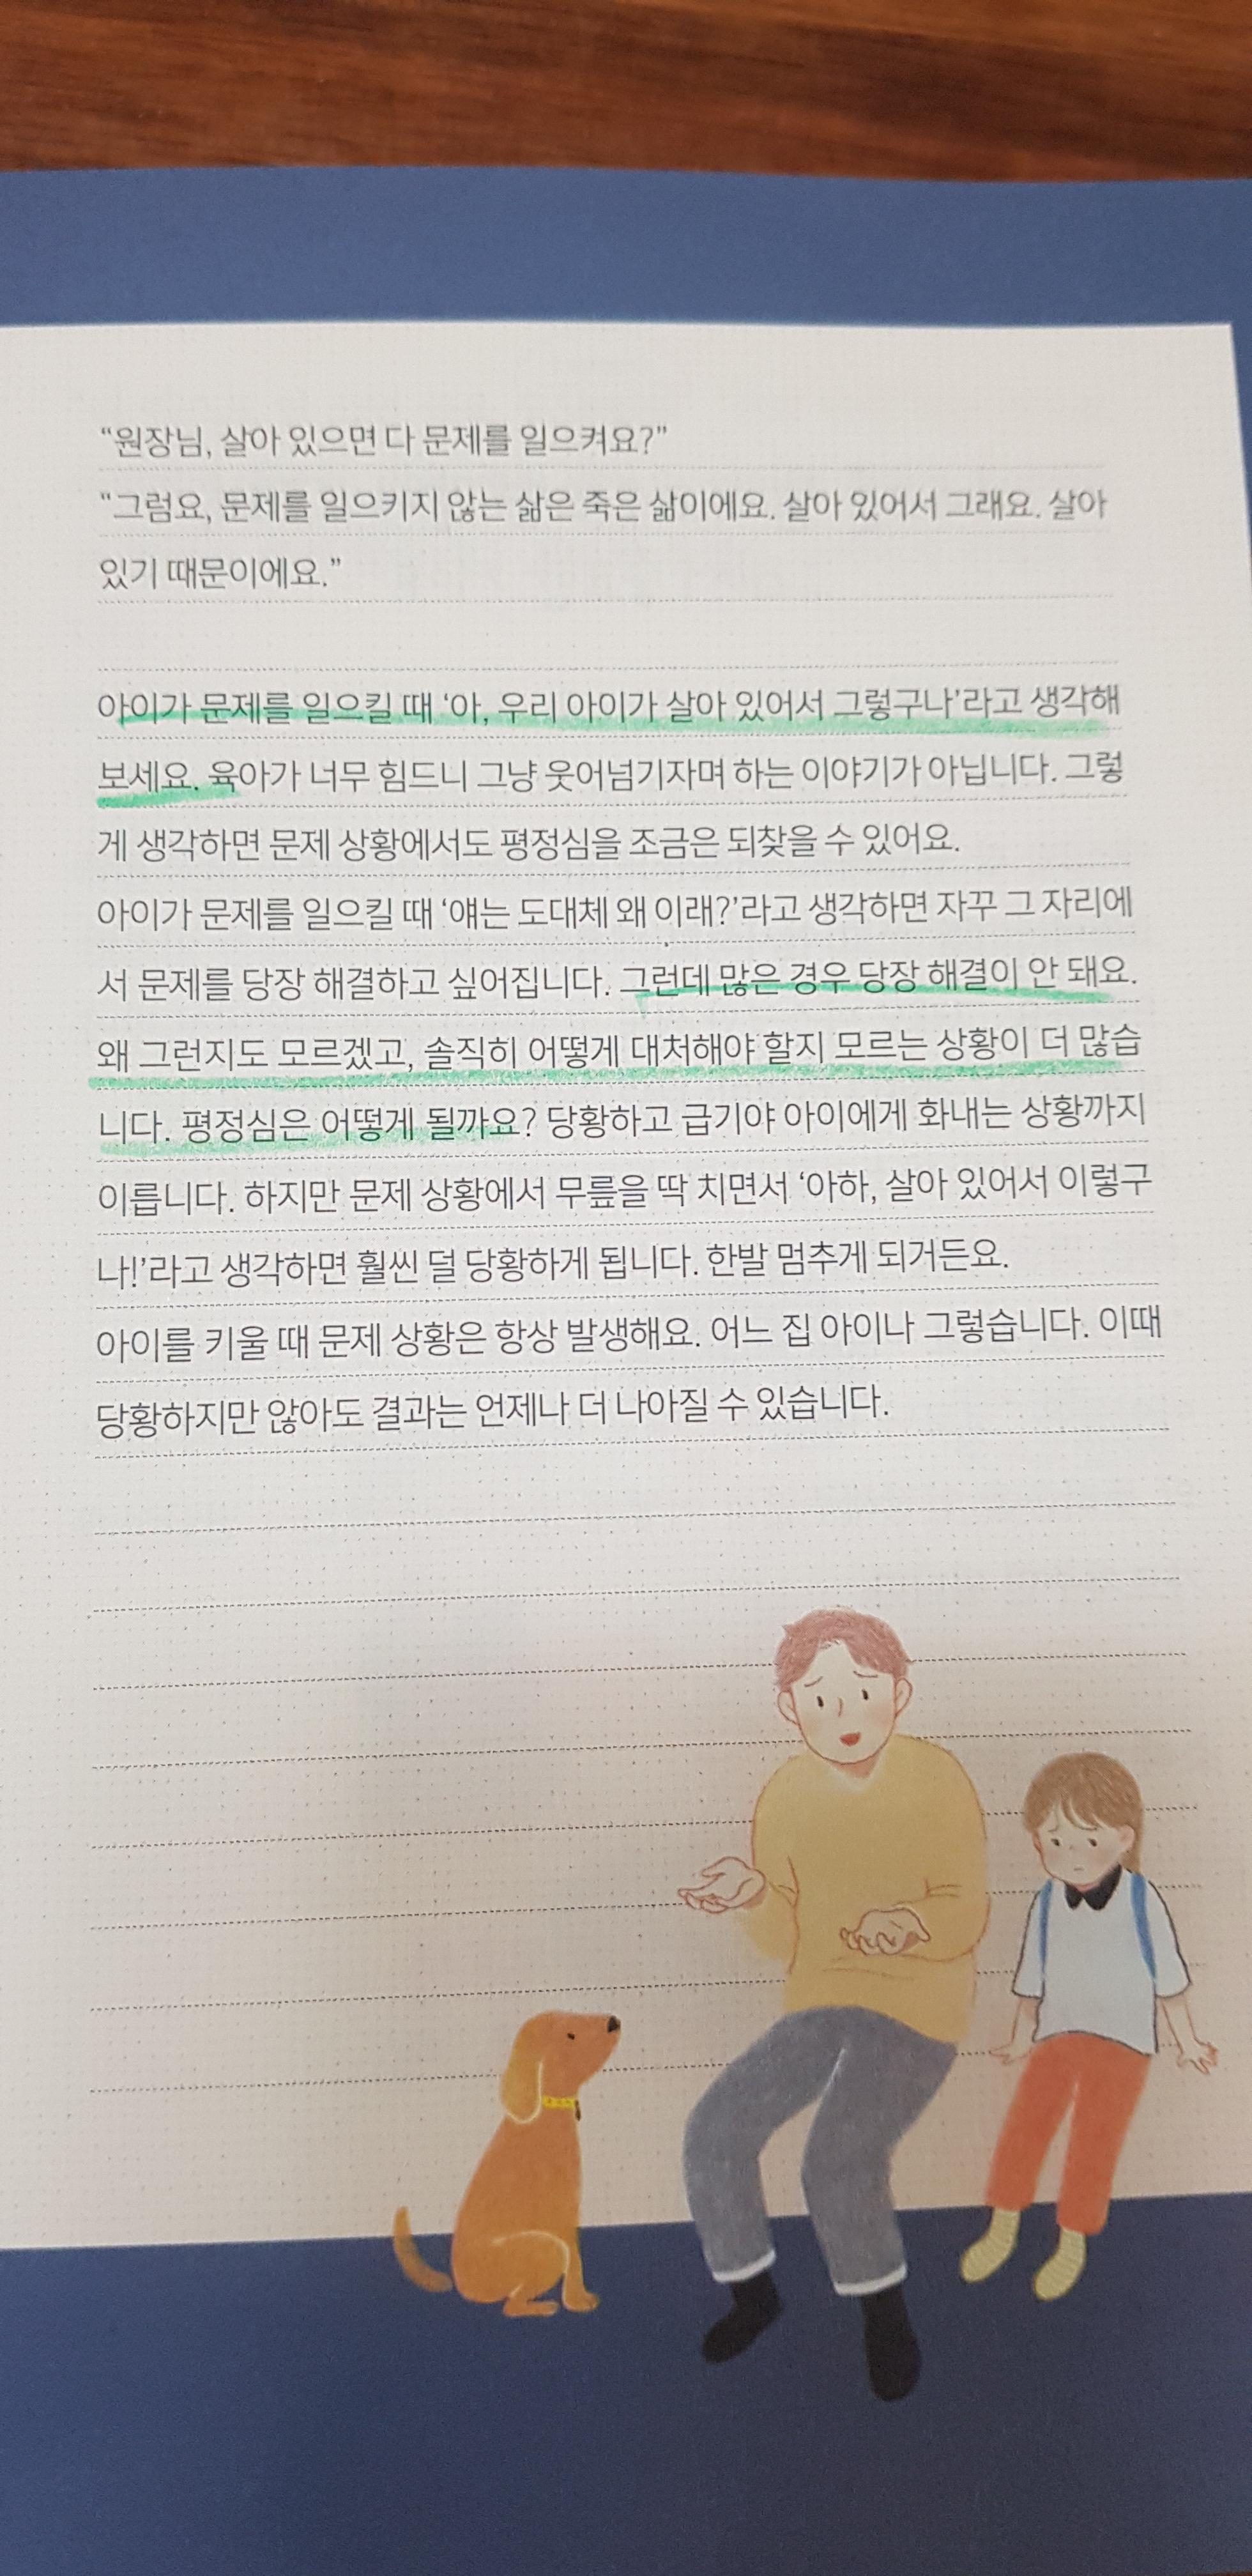 “원장님, 살아 있으면 다 문제를 일으켜요?”
“그럼요, 문제를 일으키지 않는 삶은 죽은 삶이에요. 살아 있어서 그래요. 살아
있기 때문이에요.”
아이가 문제를 일으킬 때 ‘아, 우리 아이가 살아 있어서 그렇구나’라고 생각해
보세요. 육아가 너무 힘드니 그냥 웃어넘기자며 하는 이야기가 아닙니다. 그렇
게 생각하면 문제 상황에서도 평정심을 조금은 되찾을 수 있어요.
아이가 문제를 일으킬 때 ‘얘는 도대체 왜 이래?’라고 생각하면 자꾸 그 자리에
서 문제를 당장 해결하고 싶어집니다. 그런데 많은 경우 당장 해결이 안 돼요.
왜 그런지도 모르겠고, 솔직히 어떻게 대처해야 할지 모르는 상황이 더 많습
니다. 평정심은 어떻게 될까요? 당황하고 급기야 아이에게 화내는 상황까지
이릅니다. 하지만 문제 상황에서 무릎을 딱 치면서 ‘아하, 살아 있어서 이렇구
나!’라고 생각하면 훨씬 덜 당황하게 됩니다. 한발 멈추게 되거든요.
아이를 키울 때 문제 상황은 항상 발생해요. 어느 집 아이나 그렇습니다. 이때
당황하지만 않아도 결과는 언제나 더 나아질 수 있습니다.